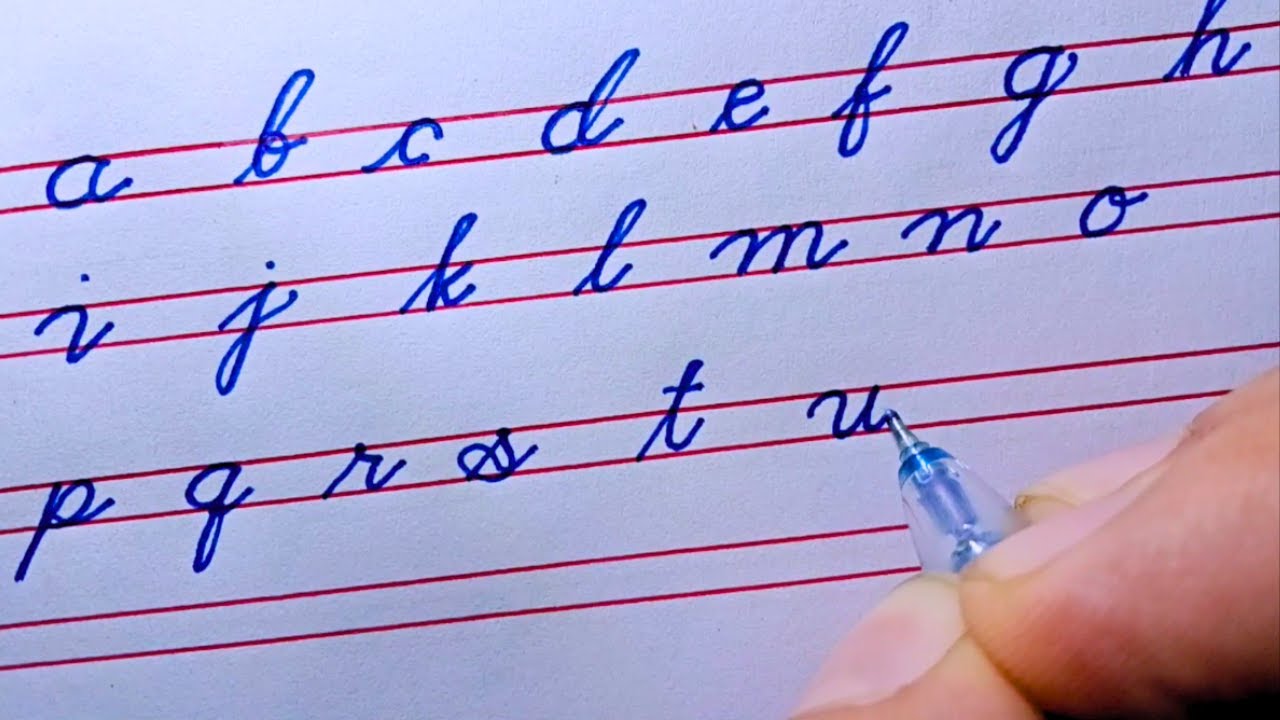 a b c d e f g h
i j k l m n o
p q r s t u